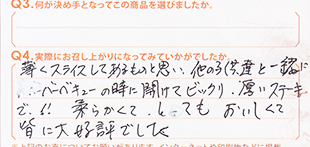 Q3.何が決め手となってこの商品を選びましたか。
Q4.実際にお召し上がりになってみていかがでしたか。
薄くスライスしてあるものと思い、他の子供達と一緒に
バーベキューの時に開けてビックリ、厚いステーキ
で、!! 柔らかくて、とても おいしくて
皆に大好評でした